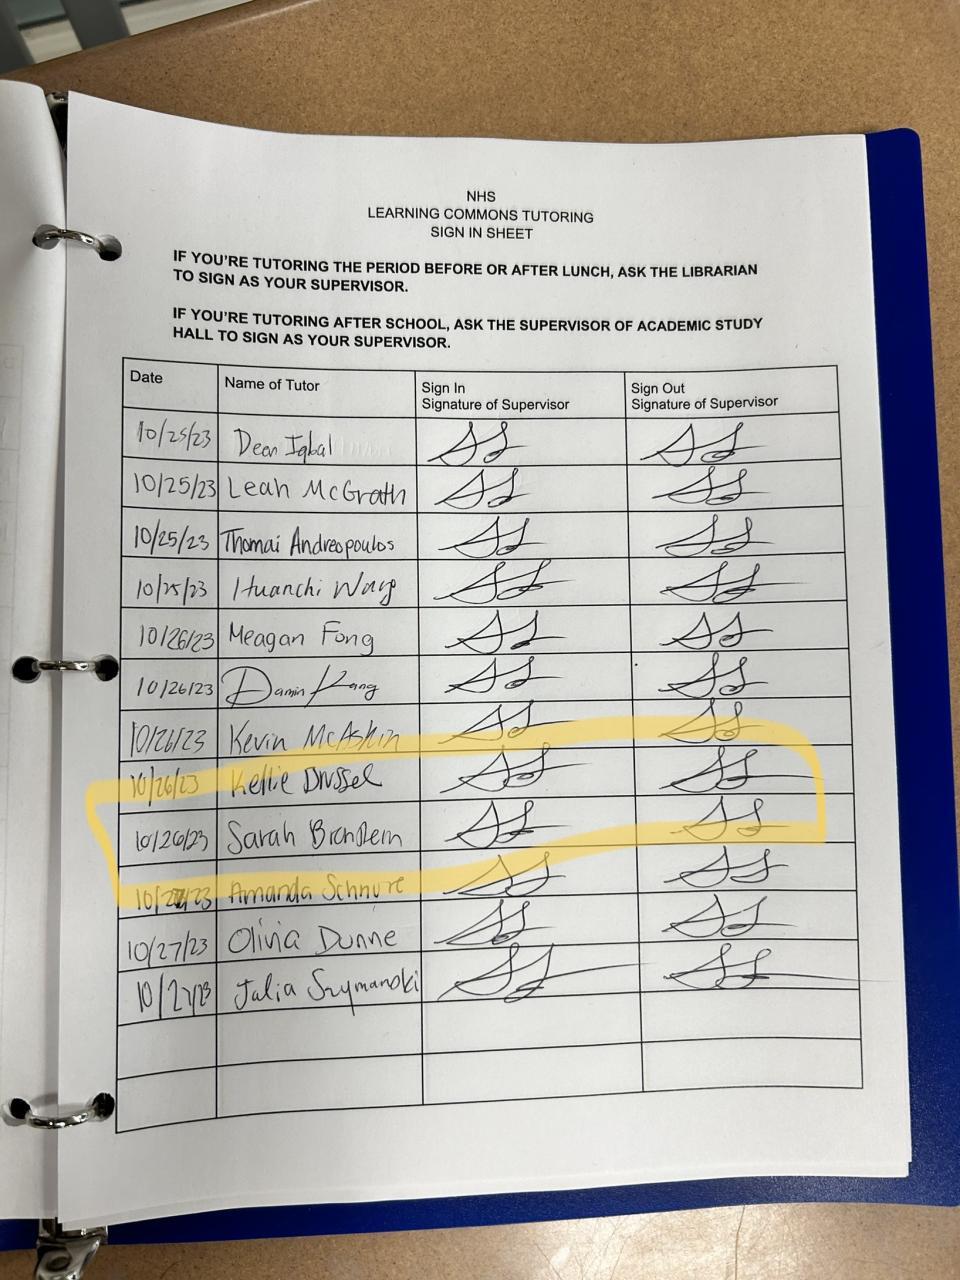 NHS
LEARNING COMMONS TUTORING
SIGN IN SHEET
IF YOU'RE TUTORING THE PERIOD BEFORE OR AFTER LUNCH, ASK THE LIBRARIAN
TO SIGN AS YOUR SUPERVISOR.
IF YOU'RE TUTORING AFTER SCHOOL, ASK THE SUPERVISOR OF ACADEMIC STUDY
HALL TO SIGN AS YOUR SUPERVISOR.
Date Name of Tutor Sign In Signature of Supervisor Sign Out Signature of Supervisor
10/25/23 Dean Iqbal
10/25/23 Leah McGrath
10/25/23 Thomai Andreopoulos
10/25/23 Huanchi Wang
10/26/23 Meagan Fong
10/26/23 Damin Kang
10/26/23 Kevin McAskin
10/26/23 Kellie Drussel
10/26/23 Sarah
10/27/23 Amanda Schnure
10/27/23 Olivia Dunne
10/27/23 Julia Szymanski